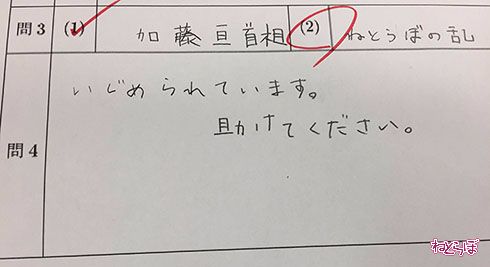 問3 (1) 加藤亘首相 (2) ねとらぼの乱
問4 いじめられています。
助けてください。
ねとらぼ